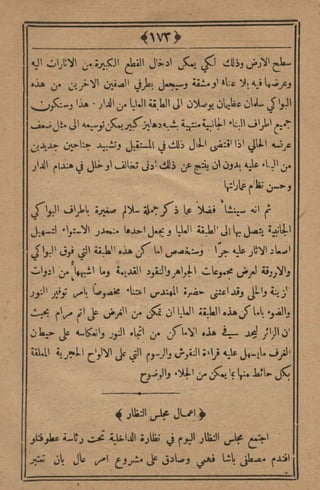 ﴿١٧٣﴾
سطح الارض وذلك لكي يمكن ادخال القطع الكبيرة من الاثارات اليه
وعرضها فيه بلا عناء او مشقة وسيجعل بطرفي الصفين الاخرين من هذه
البواكي سلمان عظيمان يوصلان الى الطبقة العليا من الدار . هذا وستكون
جميع اطراف البناء الجانبية منتهية بشبه دهاليز كبير يمكن توسيعه الى مثل ضعف
عرضه الحالي اذا اقتضى الحال ذلك في المستقبل وتشييد جناحين جديدين
من البناء عليه بدون ان ينتج عن ذلك ادنى تخالف او خلل في هندام الدار
وحسن نظام عماراتها
ثم انه سينشأ فضلاً عما ذكر جملة سلالم صغيرة باطراف البواكي
الجانبية يتصل بها الى الطبقة العليا ويجعل احدها منحدر الاستواء لتسهيل
اصعاد الاثار عليه جرًّا . وستخصص اماكن هذه الطبقة التي فوق البواكي
والاروقة لعرض مجموعات الجواهر والنقود القديمة وما اشبهها من ادوات
الزينة والحلى وقد اعتنى حضرة المهندس اعتناءً مخصوصاً بامر توفير النور
والضوء باماكن هذه الطبقة العليا ان تمكن من الغرض على اتم مرام بحيث
ان الزائر ليجد في هذه الاماكن من اتجاه النور وانعكاسه على حيطان
الغرف ما يسهل عليه قراءة النقوش والرسوم التي على الالواح الحجرية المعلقة
بكل حائط منها بما يمكن من الجلاء والوضوح
﴿ اعمال مجلس النظار ﴾
اجتمع مجلس النظار اليوم في نظارة الداخلية تحت رئاسة عطوفتلو
افندم مصطفى باشا فهمي وصادق على مشروع امر عال بان تعتبر